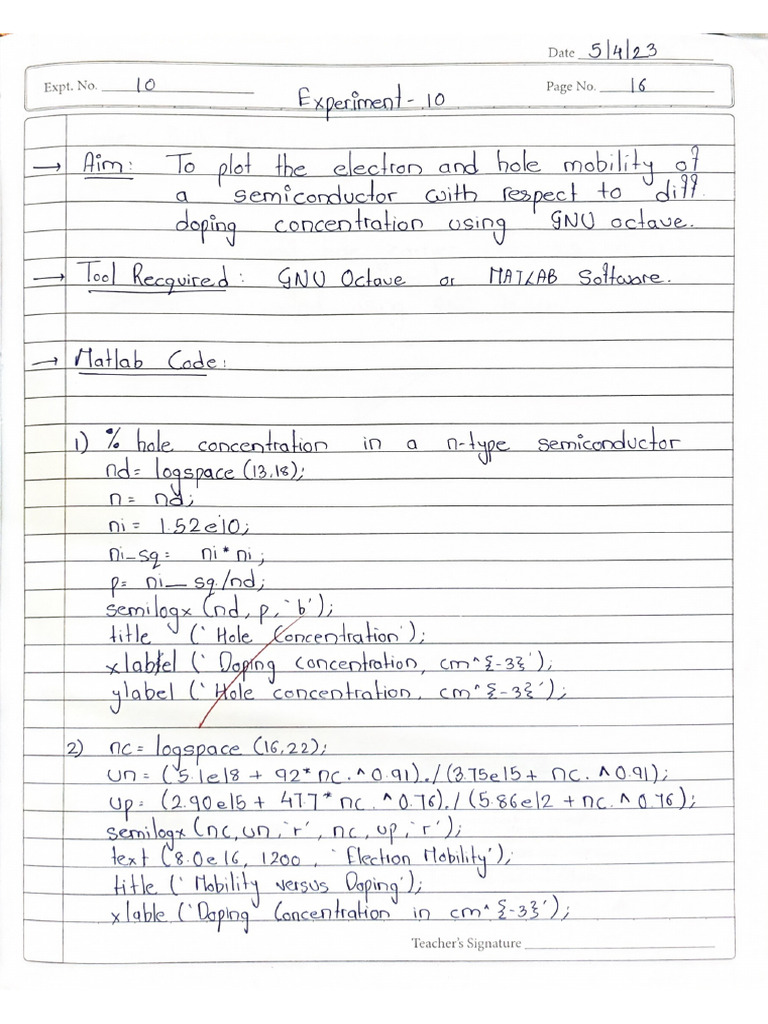 Date 5/4/23
Expt. No. 10
Page No. 16
Experiment - 10
→ Aim: To plot the electron and hole mobility of
a semiconductor with respect to diff.
doping concentration using GNU octave.
→ Tool Recquired: GNU Octave or MATLAB Software.
→ Matlab Code:
1) % hole concentration in a n-type semiconductor
nd= logspace (13,18);
n= nd;
ni = 1.52e10;
ni_sq= ni*ni;
p= ni_sq./nd;
semilogx (nd, p, 'b');
title ('Hole Concentration');
xlabel ('Doping concentration, cm^{-3}');
ylabel ('Hole concentration, cm^{-3}');
2) nc= logspace (16,22);
un= (5.1e18 + 92*nc.^0.91)./(3.75e15+ nc.^0.91);
up= (2.90e15+ 47.7*nc.^0.76)./(5.86e12+nc.^0.76);
semilogx (nc,un,'r', nc,up,'r');
text (8.0e16, 1200, 'Election Mobility');
title ('Mobility versus Doping');
xlable ('Doping Concentration in cm^{-3}');
Teacher's Signature